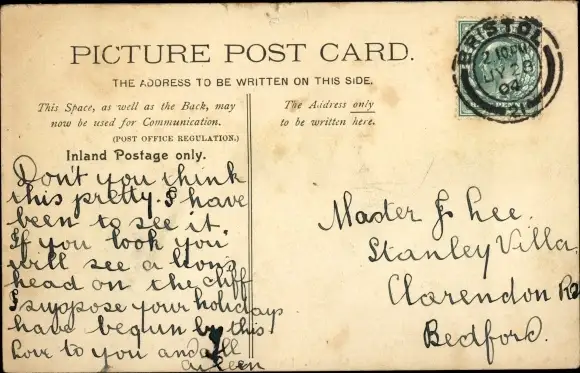 PICTURE POST CARD.
THE ADDRESS TO BE WRITTEN ON THIS SIDE.
This Space, as well as the Back, may
now be used for Communication.
(POST OFFICE REGULATION.)
Inland Postage only.
The Address only
to be written here.
BRISTOL
JY 28
04
Don't you think
this pretty. I have
been to see it.
If you look you
will see a lion's
head on the cliff
I suppose your holidays
have begun by this.
Love to you and all
Aileen
Master J Lee.
Stanley Villa
Clarendon Rd
Bedford.